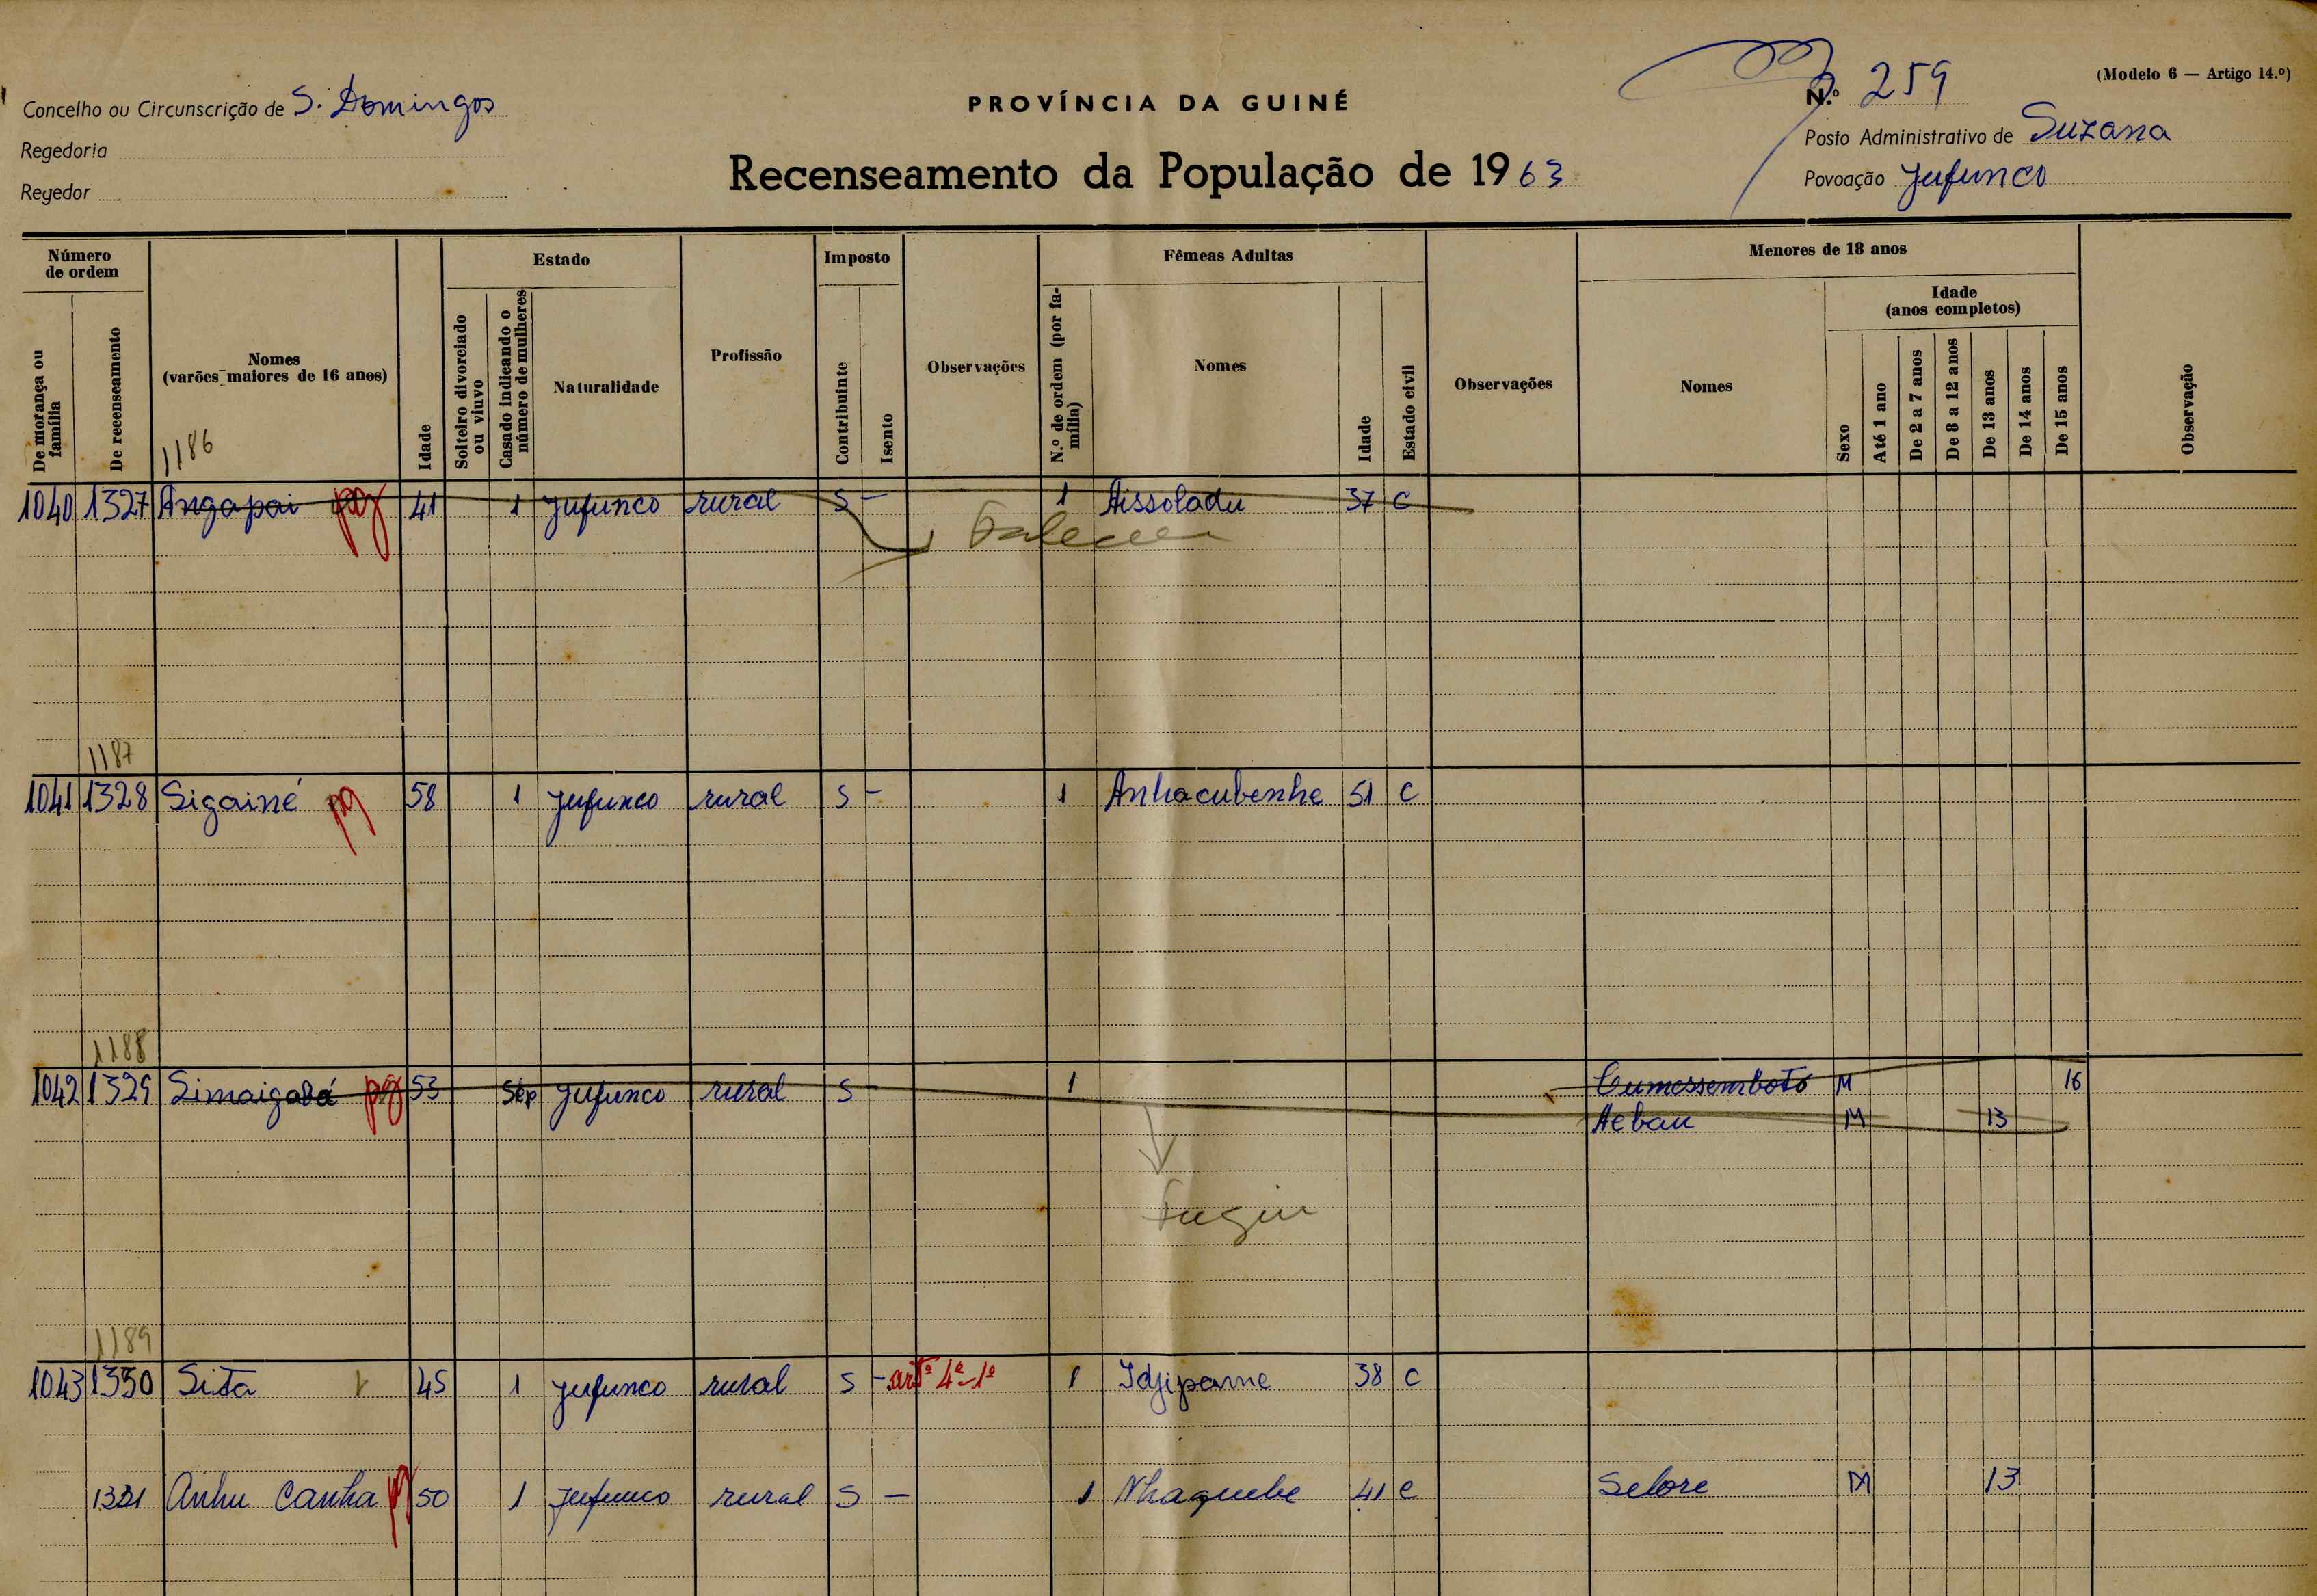 (Modelo 6 — Artigo 14.º)
PROVÍNCIA DA GUINÉ
N.º 259
Concelho ou Circunscrição de S. Domingos
Regedoria
Regedor
Recenseamento da População de 1963
Posto Administrativo de Suzana
Povoação Jufunco
Número de ordem
De morança ou família
De recenseamento
Nomes (varões maiores de 16 anos)
Idade
Estado
Solteiro divorciado ou viuvo
Casado indicando o número de mulheres
Naturalidade
Profissão
Imposto
Contribuinte
Isento
Observações
Fêmeas Adultas
N.º de ordem (por família)
Nomes
Idade
Estado civil
Observações
Menores de 18 anos
Nomes
Idade (anos completos)
Sexo
Até 1 ano
De 2 a 7 anos
De 8 a 12 anos
De 13 anos
De 14 anos
De 15 anos
Observação
1186
1040 1327 Angapai pg 41 1 Jufunco rural S — 1 Aissoladu 37 C
Faleceu
1187
1041 1328 Sigainé pg 58 1 Jufunco rural S — 1 Anhacubenhe 51 C
1188
1042 1329 Simaigabá pg 53 Sep Jufunco rural S 1 Cumessemboto M 16
Aebau M 13
Fugiu
1189
1043 1330 Sita 45 1 Jufunco rural S — artº 4º-1º 1 Idjipame 38 C
1331 Anhu Canha pg 50 1 Jufunco rural S — 1 Nhaguebe 41 C Selore M 13